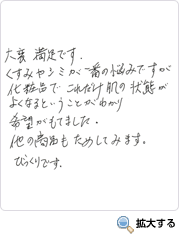 大変 満足です.
くすみやシミが一番の悩みですが
化粧品で これだけ肌の状態が
よくなるということがわかり
希望がもてました.
他の商品もためしてみます。
びっくりです.
拡大する